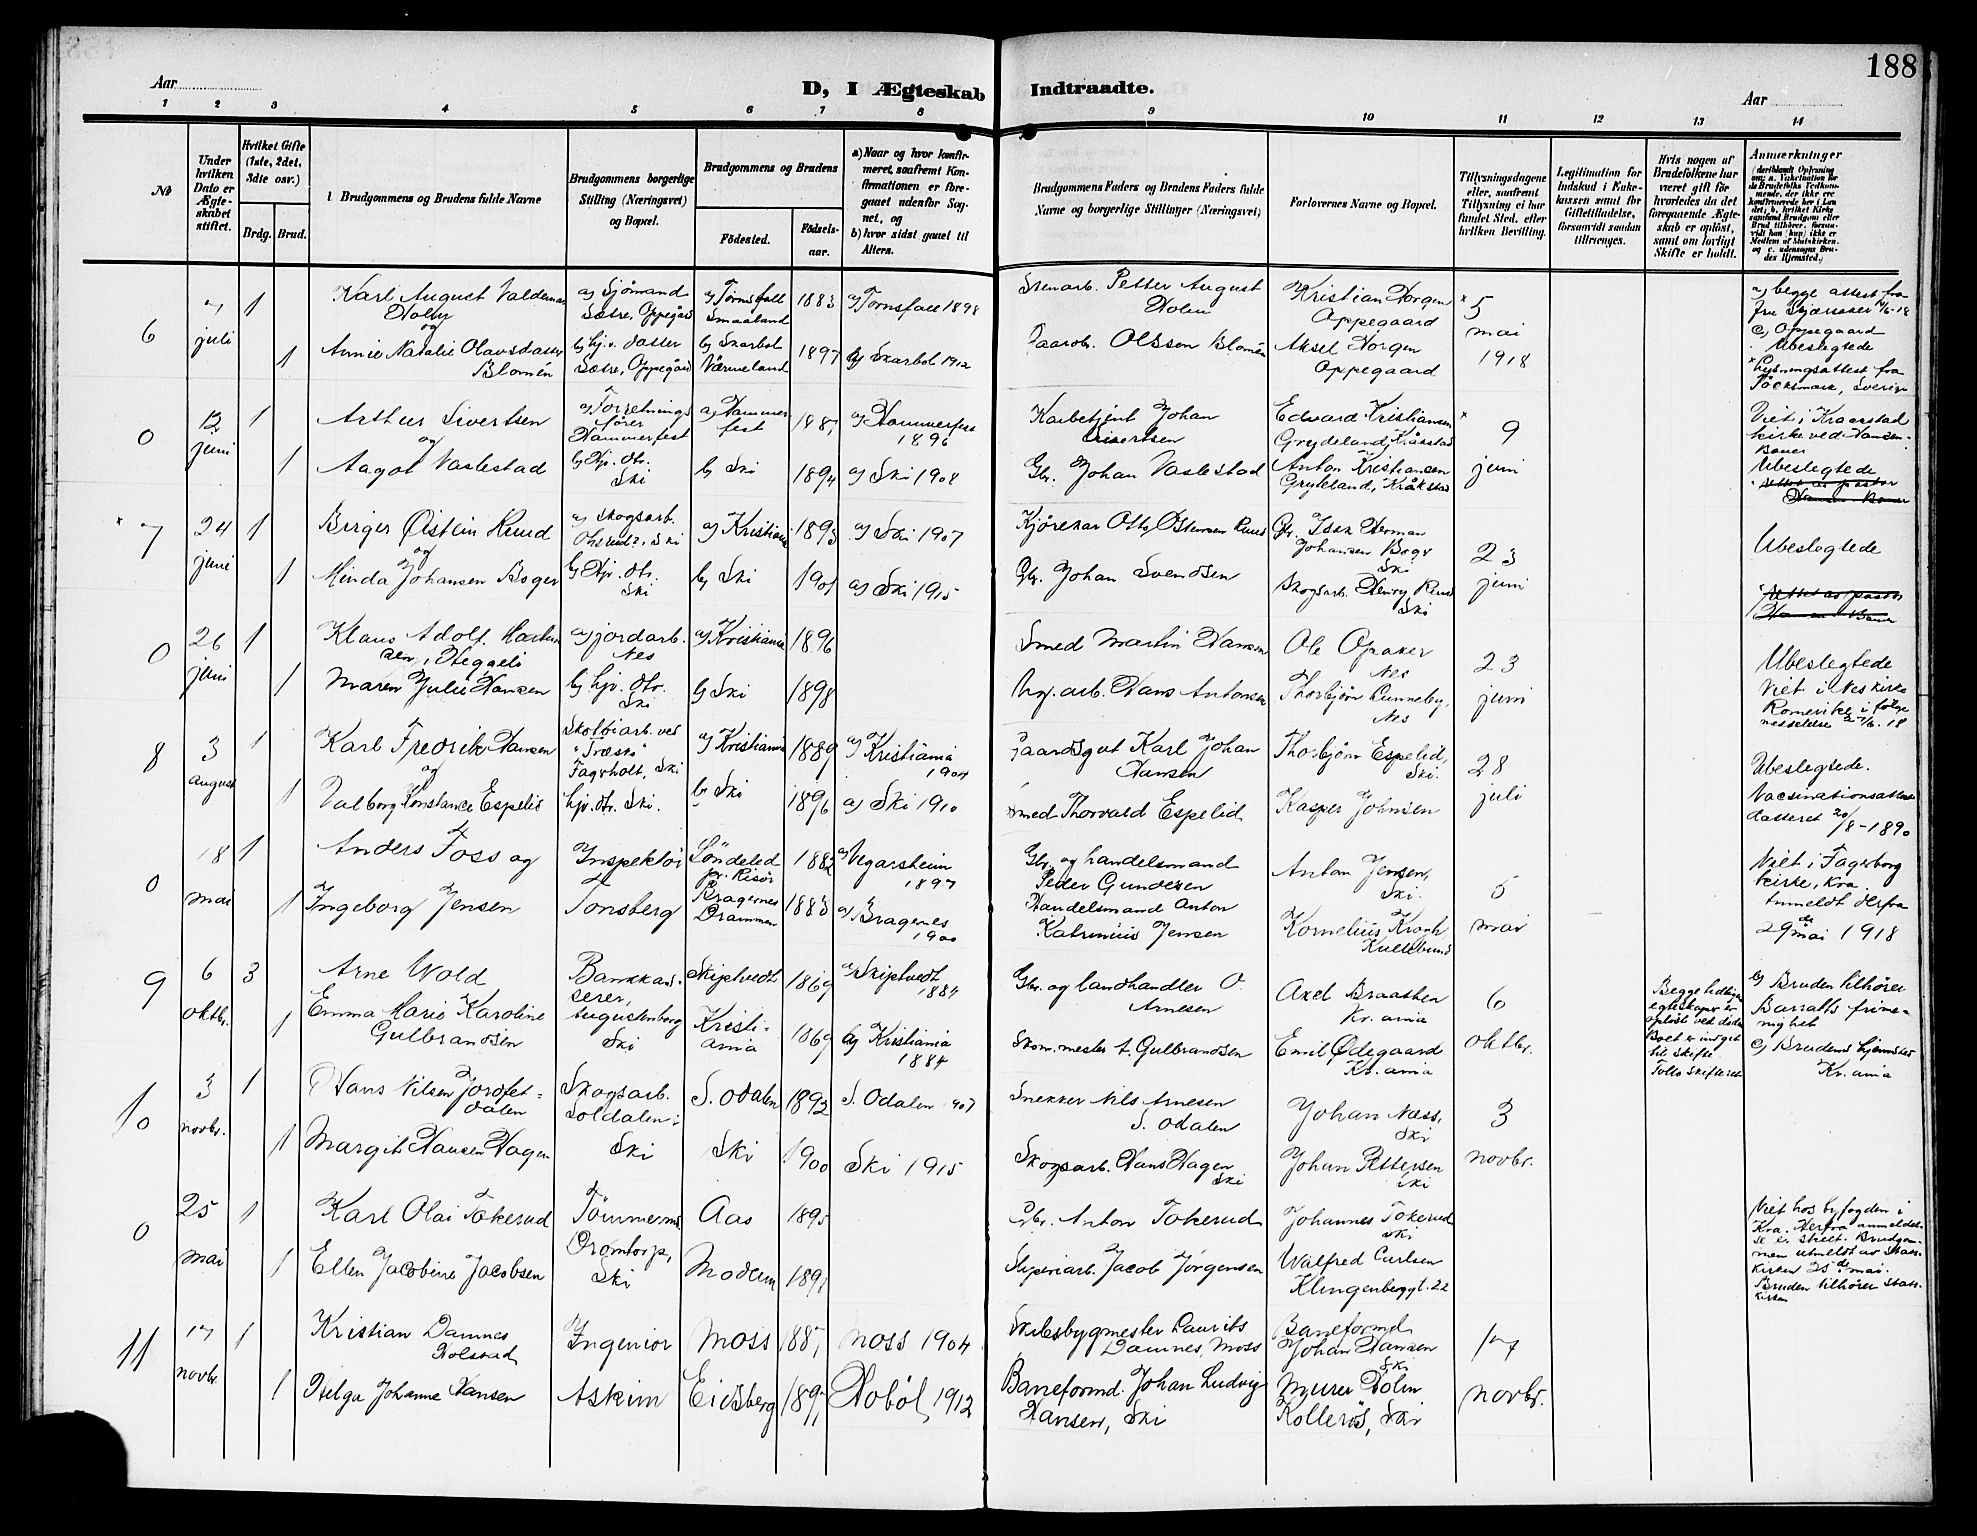 188
Aar
D, I Ægteskab Indtraadte.
Aar
1 2 3 4 5 6 7 8 9 10 11 12 13 14
№
Under hvilken Dato er Ægteskabet stiftet.
Hvilket Gifte (1ste, 2det, 3die osv.)
Brdg. Brud.
Brudgommens og Brudens fulde Navne
Brudgommens borgerlige Stilling (Næringsvei) og Bopæl.
Brudgommens og Brudens
Födested.
Födselsaar.
a) Naar og hvor konfirmeret, saafremt Konfirmationen er foregaaet udenfor Sognet, og
b) hvor sidst gaaet til Alters.
Brudgommens Faders og Brudens Faders fulde Navne og borgerlige Stillinger (Næringsvei)
Forlovernes Navne og Bopæl.
Tillysningsdagene eller, saafremt Tillysning ei har fundet Sted, efter hvilken Bevilling.
Legitimation for Indskud i Enkekassen samt for Giftetilladelse, forsaavidt saadan tiltrænges.
Hvis nogen af Brudefolkene har været gift för hvorledes da det foregaaende Ægteskab er oplöst, samt om lovligt Skifte er holdt.
Anmærkninger
6
7 juli
1
Karl August Valdemar
Holm
og
a) Sjömand
Sætre, Oppegård
a) Tornsfall
Smaaland
1883
a) Tornsfall 1898
Petter August
Holm
Kristian Norgen
Oppegaard
5
mai
1918
a) begge attest fra
c) Oppegaard
Ubeslegtede
1
Annie Natalie Olavsdatter
Blomén
b) hj.v. datter
Sætre, Oppegård
b) Skarbol
Värmeland
1897
b) Skarbol 1912
Olsson Blomén
Aksel Norgen
Oppegaard
Lysningsattest fra
Töcksmark, Sverige
0
12 juni
1
Arthur Sivertsen
og
a) Forretnings
fører
Hammerfest
a) Hammer
fest
1887
a) Hammerfest
1896
Johan
Sivertsen
Edvard Kristiansen
Grydeland, Kråkstad
9
juni
Viet i Kraakstad
kirke ved Hansen-
Bauer
Ubeslegtede
1
Aagot Vaslestad
b) Hj. dtr.
Ski
b) Ski
1894
a) Ski 1908
Gbr. Johan Vaslestad
Anton Kristiansen
Grydeland, Kråkstad
7
24 juni
1
Birger Øistein Ruud
og
a) skogsarb.
Ski
a) Kristiania
1893
a) Ski 1907
Kjørekar Otto Ruud
Gbr. Isak Herman
Johansen Boger
Ski
23
juni
Ubeslegtede
1
Minda Johansen Boger
b) Hj. dtr.
Ski
b) Ski
1901
a) Ski 1915
Gbr. Johan Svendsen
Skogsarb. Henry Ruud
Ski
0
26 juni
1
Klaus Adolf Martin
sen, Heggeli
a) jordarb.
Nes
a) Kristiania
1896
Smed Martin Hansen
Ole Opaker
Nes
23
juni
Ubeslegtede
Viet i Nes kirke
Romerike i følge
1
Maren Julie Hansen
b) hj. dtr.
Ski
b) Ski
1898
Hans Antonsen
Thorbjørn Lunneby,
Nes
8
3 august
1
Karl Fredrik Hansen
og
Skotøiarb. ved
"Træsko"
Fagerholt, Ski
a) Kristiania
1889
a) Kristiania
1904
Gaardsgut Karl Johan
Hansen
Thorbjørn Espelid,
Ski.
28
juli
Ubeslegtede.
Vacsinationsattest
datteret 20/8-1890
1
Valborg Konstance Espelid
hj. dtr. Ski.
b) Ski
1896
a) Ski 1910
Smed Thorvald Espelid
Kasper Johnsen
0
18 mai
1
Anders Foss og
Inspektør
Söndeled
pr. Risör
1882
a) Vegarsheim
1897
Gbr. og handelsmand
Peder Gundersen
Anton Jensen,
Ski.
5
mai
Viet i Fagerborg
kirke, Kra.
anmeldt derfra
29de mai 1918
1
Ingeborg Jensen
Tønsberg
Bragernes
Drammen
1883
a) Bragenes
1900
Handelsmand Anton
Katrinius Jensen
Kornelius Krogh
9
6 oktbr.
3
Arne Wold
Bankkas-
serer,
Augustenborg
Ski
Skiptvedt
1869
a) Skiptvedt
1884
Gbr. og landhandler O.
Arnesen
Axel Braathen
Kr. ania
6
oktbr.
Begge tidligere
egteskaper er
opløst ved døden
til skifte
Follo skifteret
c) Bruden tilhører
Barratts frime-
nighet
c) Brudens hjemsted
Kr. ania
1
Emma Marie Karoline
Gulbrandsen
Kristi-
ania
1869
b) Kristiania
1884
Skom.mester A. Gulbrandsen
Emil Ødegaard
Kr. ania
10
3 novbr.
1
Hans Nilsen Jordfet-
dalen
Skogsarb.
Soldalen i
Ski
S. Odalen
1892
S. Odalen 1907
Snekker Nils Arnesen
S. Odalen
Johan Næss,
Ski
3
novbr.
1
Margit Hansen Hagen
Ski
1900
Ski 1915
Skogsarb. Hans Hagen
Ski
Johan Pettersen
Ski
0
25 mai
1
Karl Olai Tokerud
Tömmerm.
Dromtorp,
Ski
Aas
1895
Gbr. Anton Tokerud
Johannes Tokerud
Ski
Viet hos byfogden i
Kra. Herfra anmeldel-
se er skeet. Brudgom-
men utmeldt av stats-
kirken 25de mai.
Bruden tilhører stats-
kirken
1
Ellen Jacobine Jacobsen
Modum
1898
Jacob Jørgensen
Walfred Carlsen
Klingenberggt. 22
11
17 novbr.
1
Kristian Damnes
Rolstad
Ingeniør
Moss
1887
Moss 1904
Skibsbygmester Laurits
Damnes, Moss
Baneformd.
Johan Hansen
Ski
17
novbr.
1
Helga Johanne Hansen
Askim
Eidsberg
1897
Hobøl 1912
Baneformd. Johan Ludvig
Hansen, Ski
Murer Holm
Kollerös, Ski